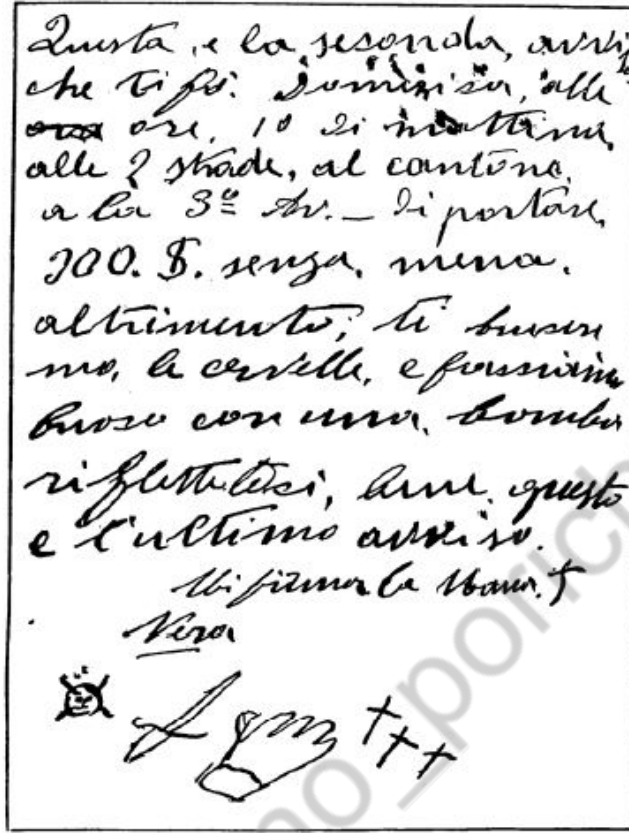 Questa, e la seconda, avviso
che ti fò. Dominica, alle
ore, 10 di mattina,
alle 2 strade, al cantone,
a la 3ª Av. — Di portare,
300. $. senza, meno.
altrimento, ti bruser
mo, le cervelle, e facciamo
buoso con una, bomba
riflettetici, bene, questo
e l'ultimo avviso.
Mi firmo la Mano. †
Nera